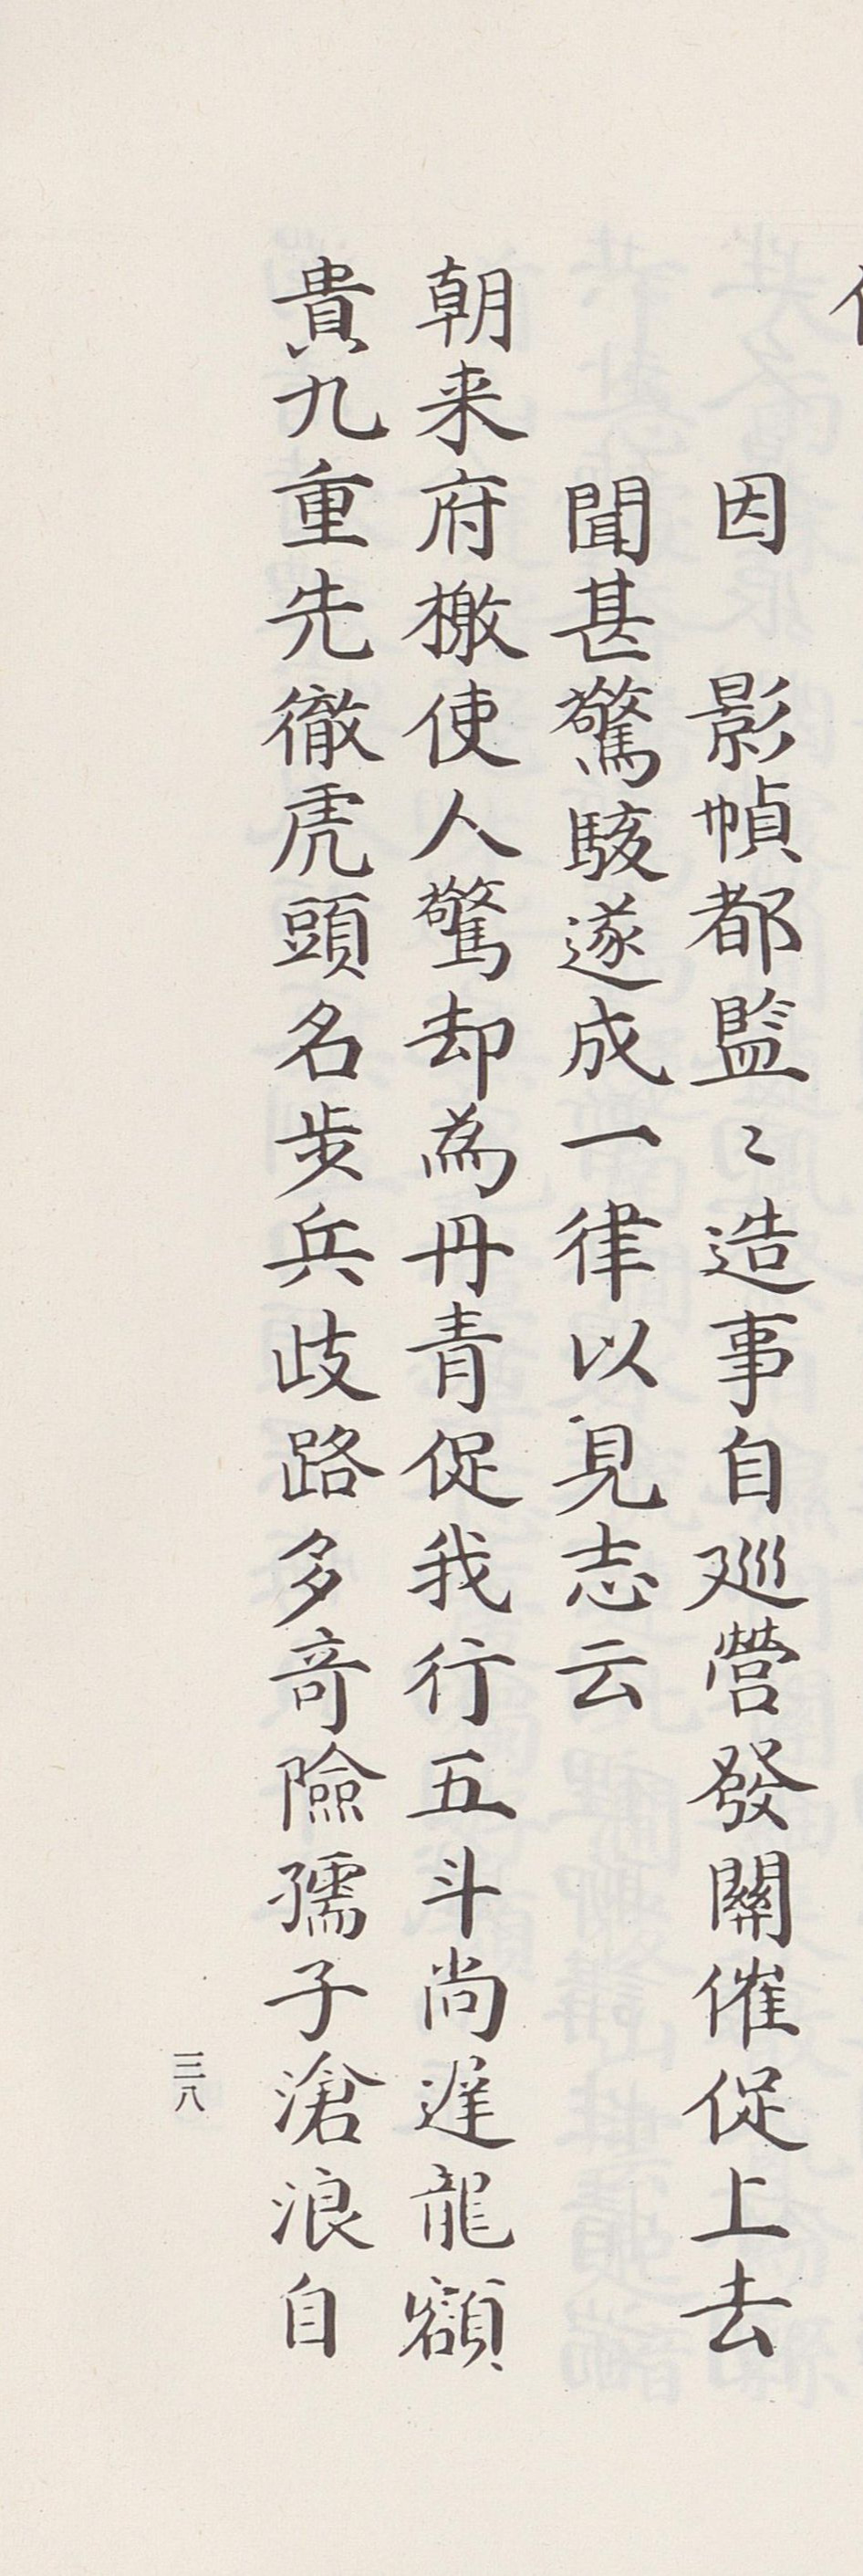 因　影幀都監〻造事自廵營發關催促上去
聞甚驚駭遂成一律以見志云
朝来府檄使人驚却為丹青促我行五斗尚遅龍額
貴九重先徹虎頭名步兵歧路多奇險孺子滄浪自
三八